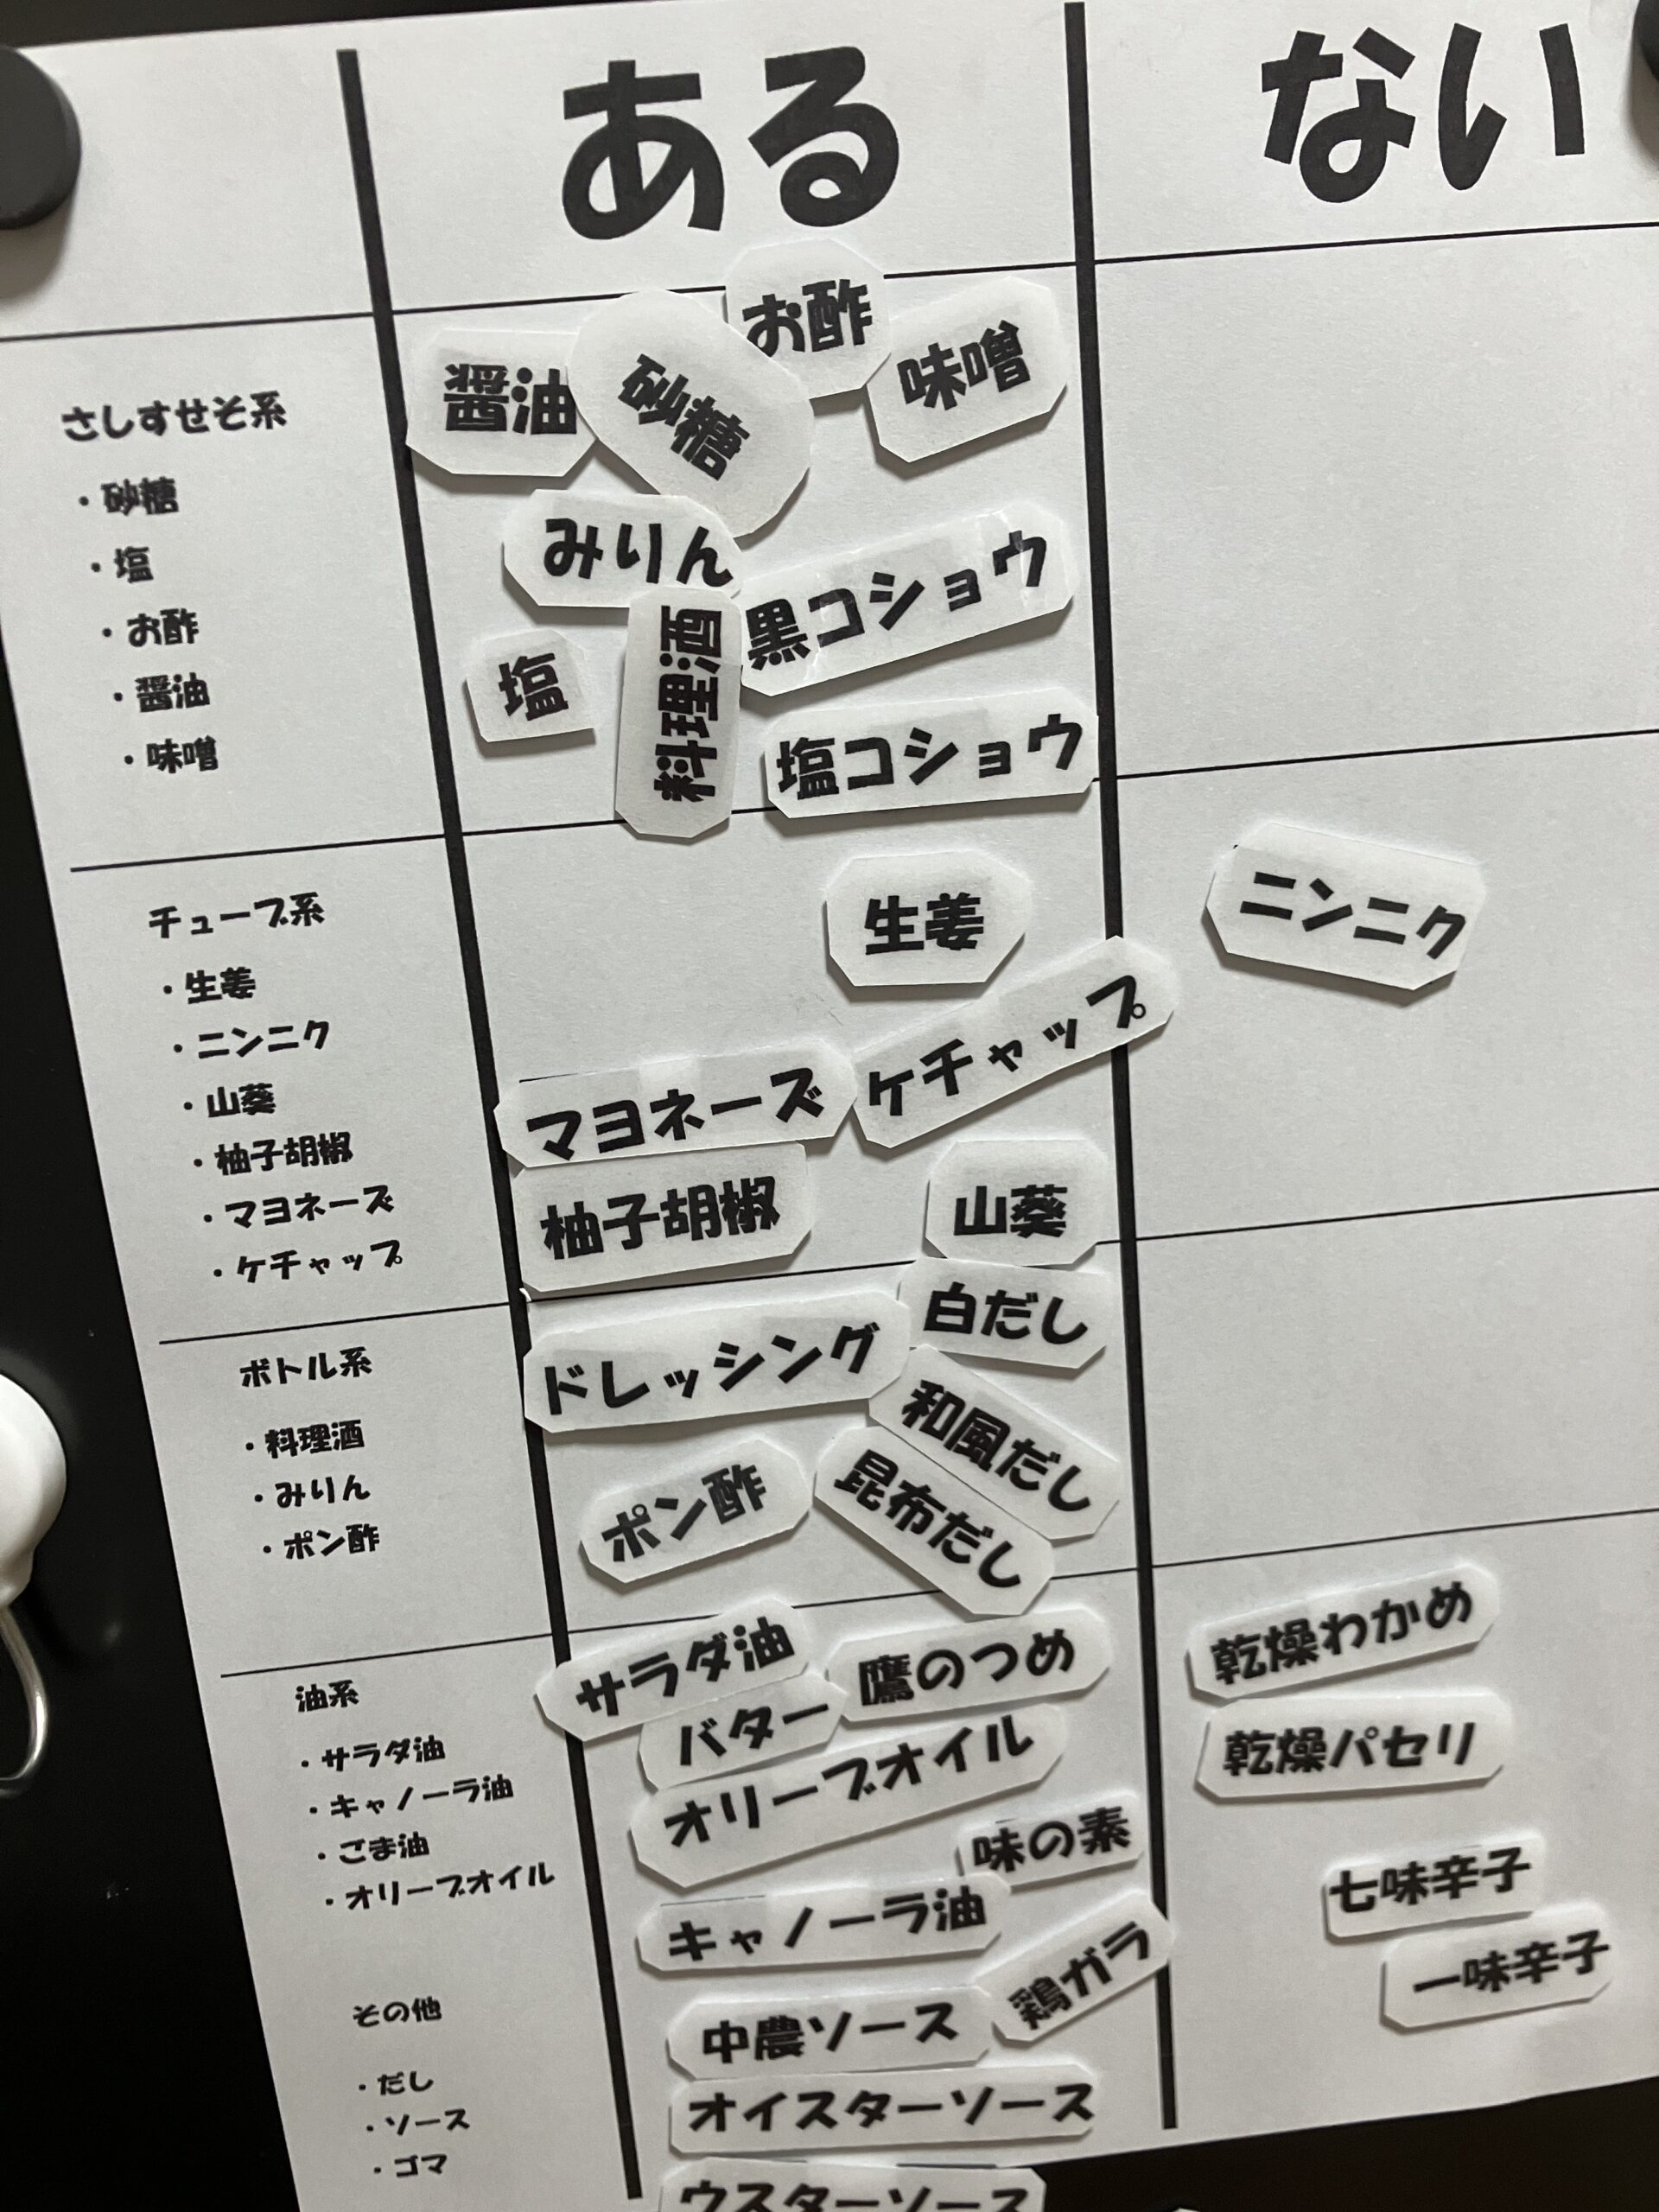 ある
ない
さしすせそ系
・砂糖
・塩
・お酢
・醤油
・味噌
お酢
味噌
醤油
砂糖
みりん
黒コショウ
塩
料理酒
塩コショウ
チューブ系
・生姜
・ニンニク
・山葵
・柚子胡椒
・マヨネーズ
・ケチャップ
生姜
ニンニク
ケチャップ
マヨネーズ
柚子胡椒
山葵
ボトル系
・料理酒
・みりん
・ポン酢
白だし
ドレッシング
和風だし
昆布だし
ポン酢
油系
・サラダ油
・キャノーラ油
・ごま油
・オリーブオイル
サラダ油
鷹のつめ
バター
オリーブオイル
味の素
キャノーラ油
乾燥わかめ
乾燥パセリ
七味辛子
一味辛子
その他
・だし
・ソース
・ゴマ
鶏ガラ
中農ソース
オイスターソース
ウスターソース